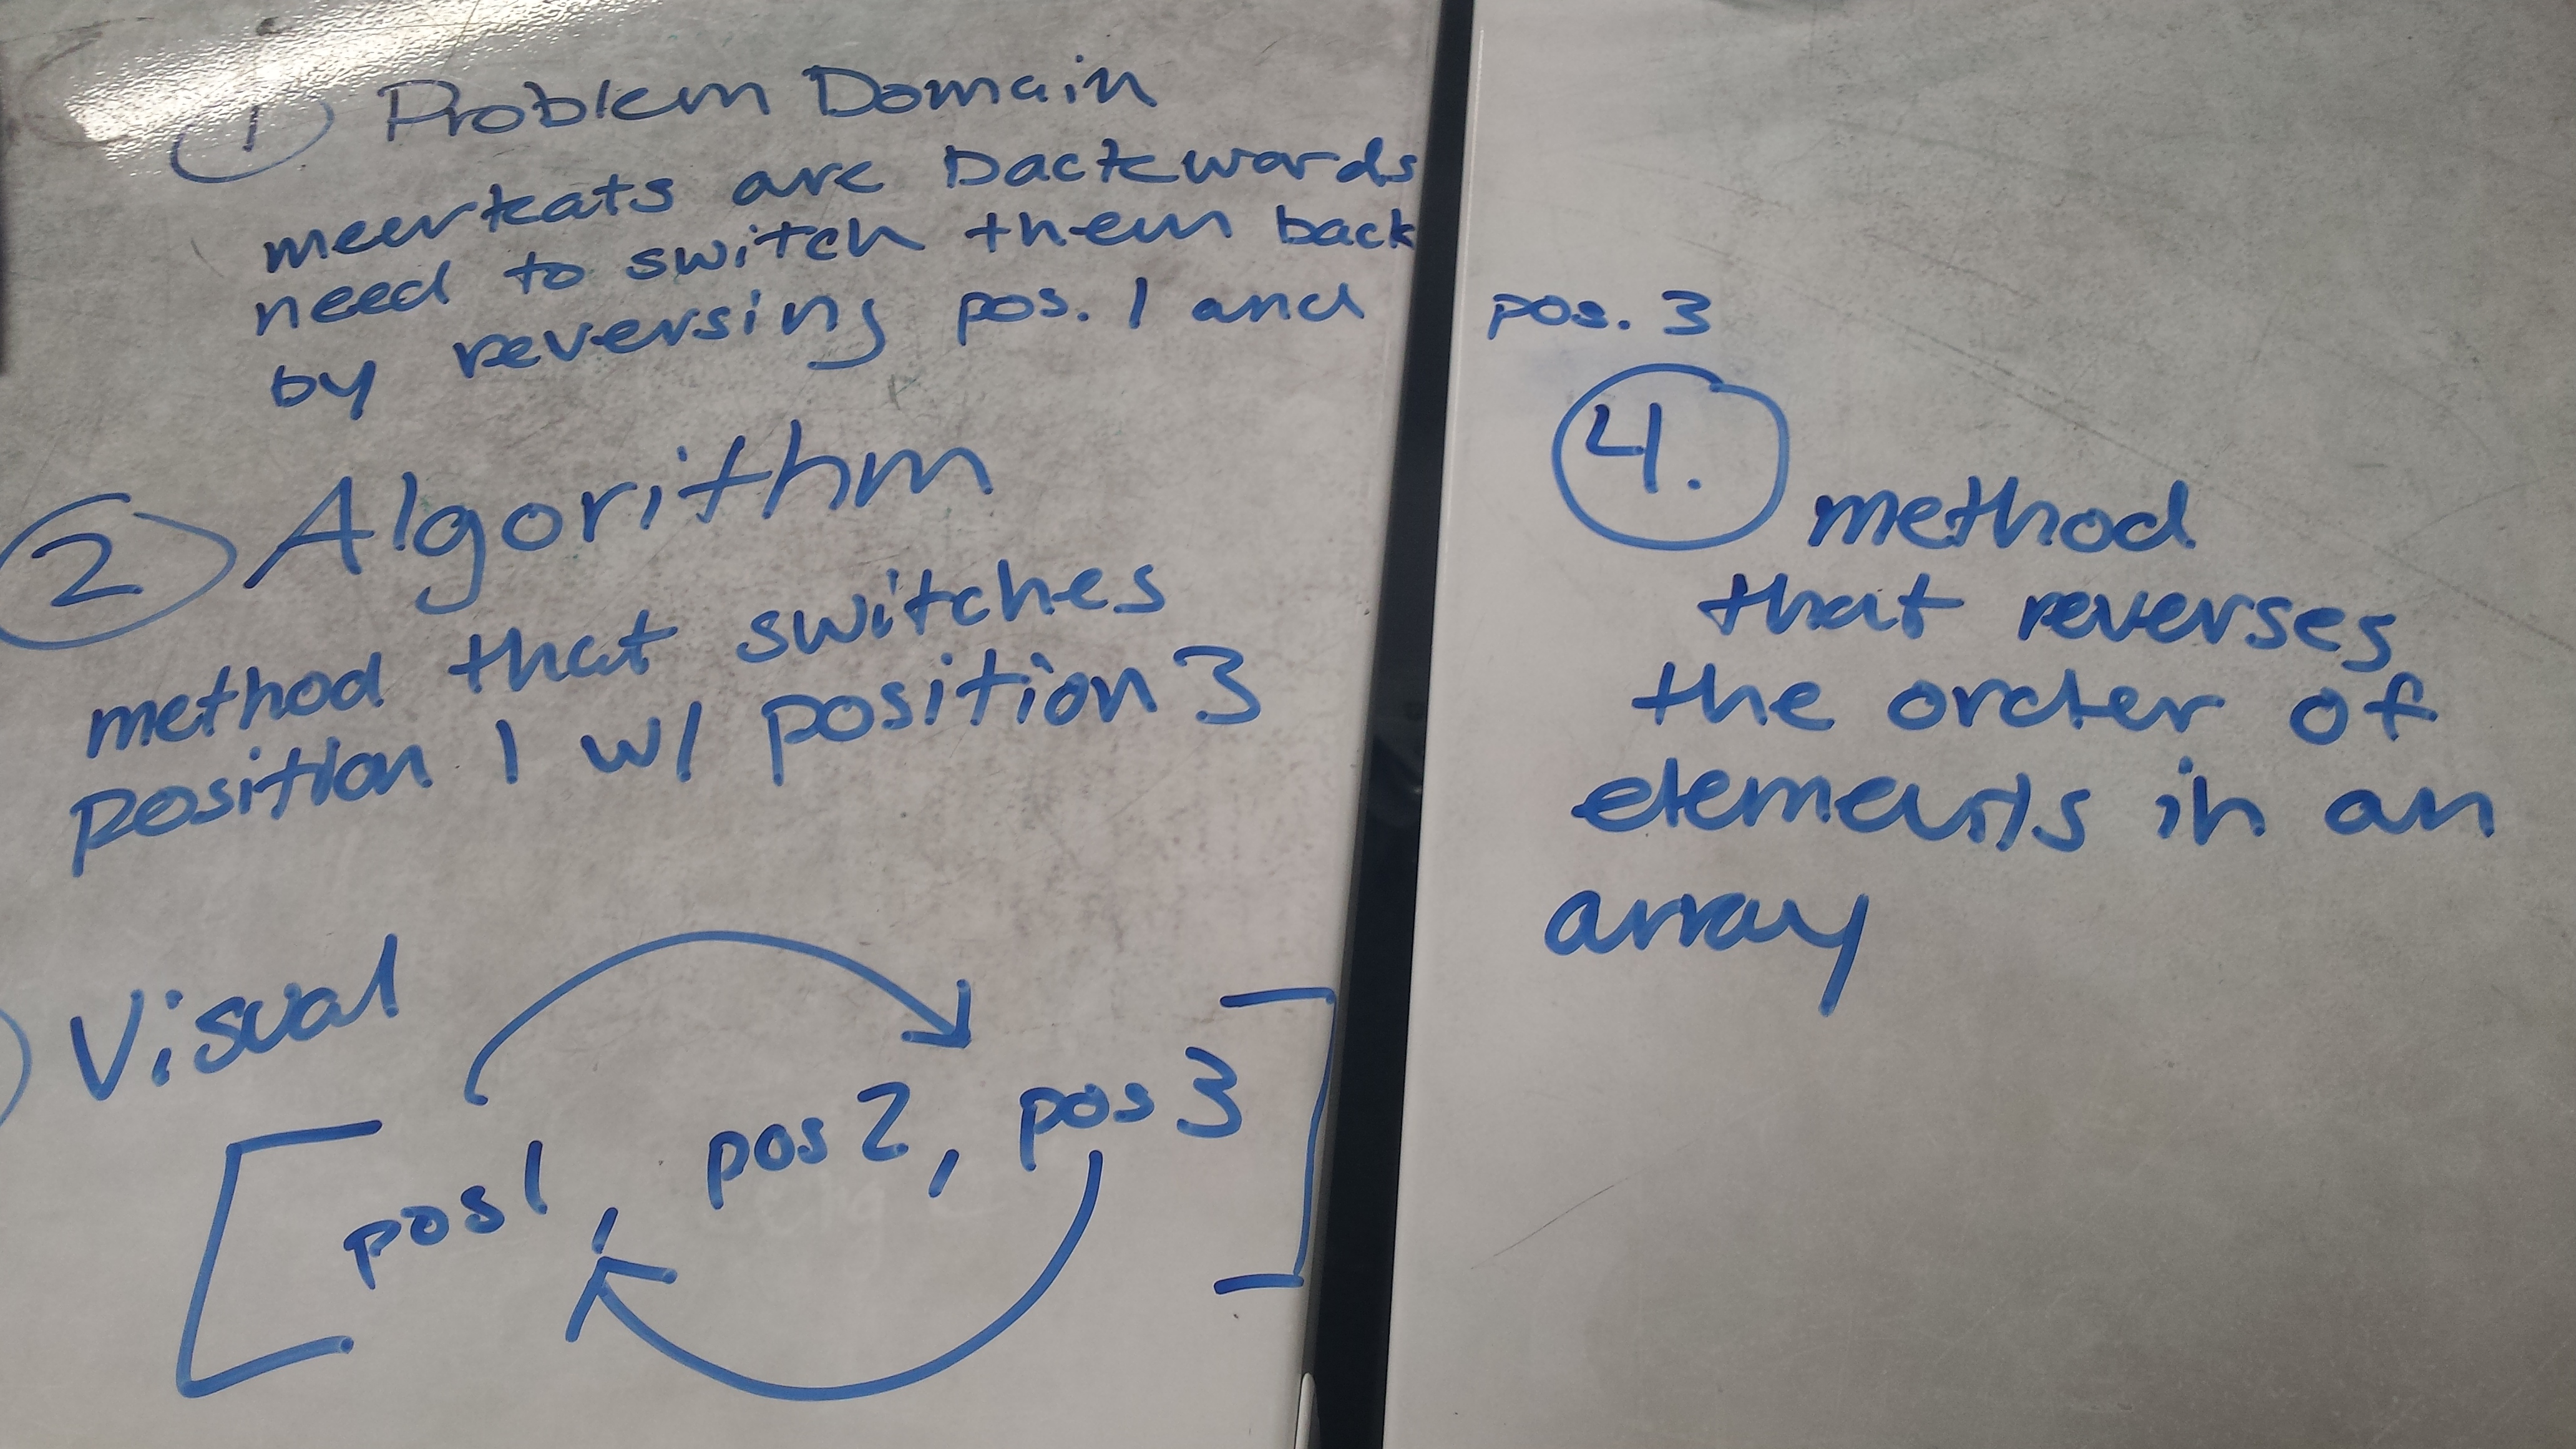 1 Problem Domain
meerkats are backwards
need to switch them back
by reversing pos. 1 and pos. 3
2 Algorithm
method that switches
position 1 w/ position 3
Visual
[pos1, pos2, pos3]
4. method
that reverses
the order of
elements in an
array